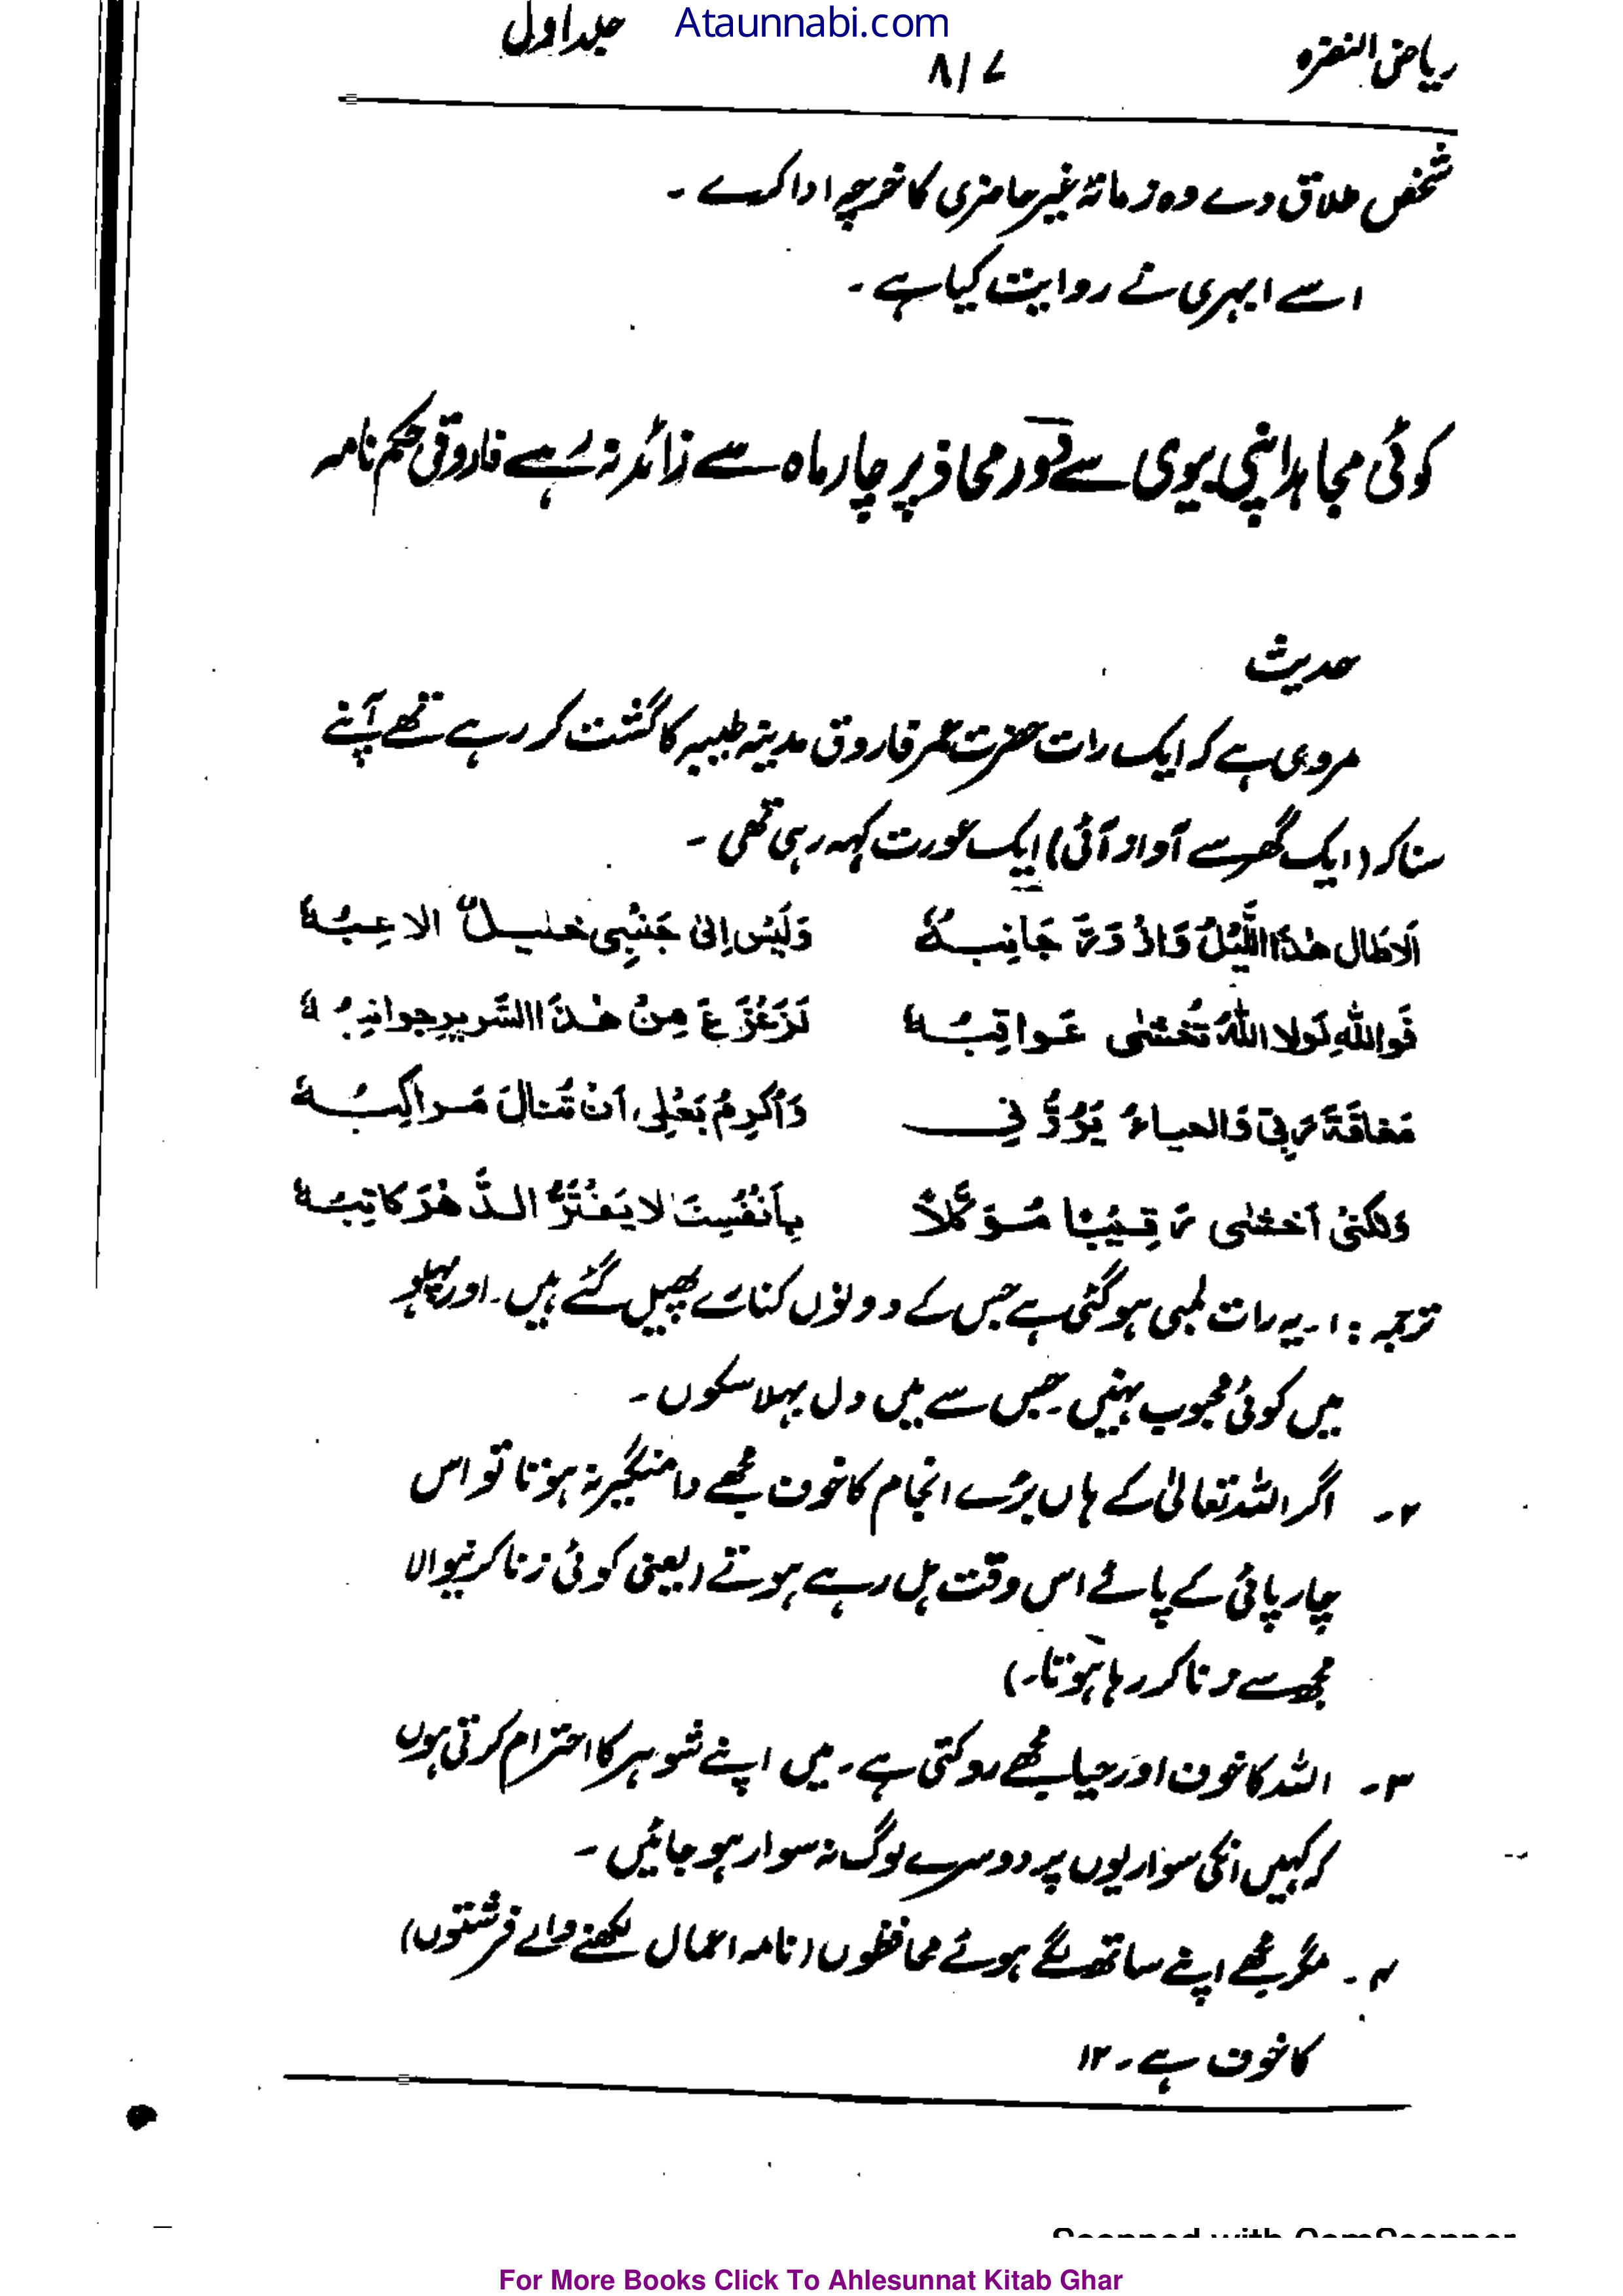 Ataunnabi.com
ریاض النضرہ ۸۱۷ جلد اول
شخص طلاق دے وہ زمانۂ غیر حاضری کا خرچہ ادا کرے۔
اسے ابہری نے روایت کیا ہے۔
کوئی مجاہد اپنی بیوی سے دور محاذ پر چار ماہ سے زائد نہ رہے فاروقی حکم نامہ
حدیث
مروی ہے کہ ایک رات حضرت عمر فاروق مدینہ طیبہ کا گشت کر رہے تھے آپ نے
سنا کہ (ایک گھر سے آواز آئی) ایک عورت کہہ رہی تھی۔
اَلَا طَال هٰذَا اللَّیْلُ وَازْوَرَّ جَانِبُهٗ وَلَیْسَ اِلیٰ جَنْبِی خلیلٌ الاعِبُهٗ
فَواللهِ لَولا اللهُ تُخْشٰی عَواقِبُهٗ لَزَعْزَعَ مِنْ هٰذَا السَّریرِ جوانِبُهٗ
مَخافَةَ رَبِّی وَالحیاءُ یَرُدُّنِی وَاُکرِمُ بَعْلِی اَنْ تُنالَ مَراکِبُهٗ
وَلٰکنی اَخْشٰی رَقِیْبًا مُوَکَّلاً بِاَنْفُسِنَا لا یَفْتُرُ الدَّهْرَ کاتِبُهٗ
ترجمہ: ۱۔ یہ رات لمبی ہوگئی ہے جس کے دونوں کنارے پھیل گئے ہیں۔ اور پہلو
میں کوئی محبوب نہیں۔ جس سے میں دل بہلا سکوں۔
۲۔ اگر اللہ تعالیٰ کے ہاں برُے انجام کا خوف مجھے دامنگیر نہ ہوتا تو اس
چارپائی کے پائے اس وقت ہل رہے ہوتے (یعنی کوئی زنا کرنیوالا
مجھ سے زنا کر رہا ہوتا۔)
۳۔ اللہ کا خوف اور حیا مجھے روکتی ہے۔ میں اپنے شوہر کا احترام کرتی ہوں
کہ کہیں انکی سواریوں پر دوسرے لوگ نہ سوار ہو جائیں۔
۴۔ مگر مجھے اپنے ساتھ لگے ہوئے محافظوں (نامہ اعمال لکھنے والے فرشتوں)
کا خوف ہے۔ ۱۲
Scanned with CamScanner
For More Books Click To Ahlesunnat Kitab Ghar